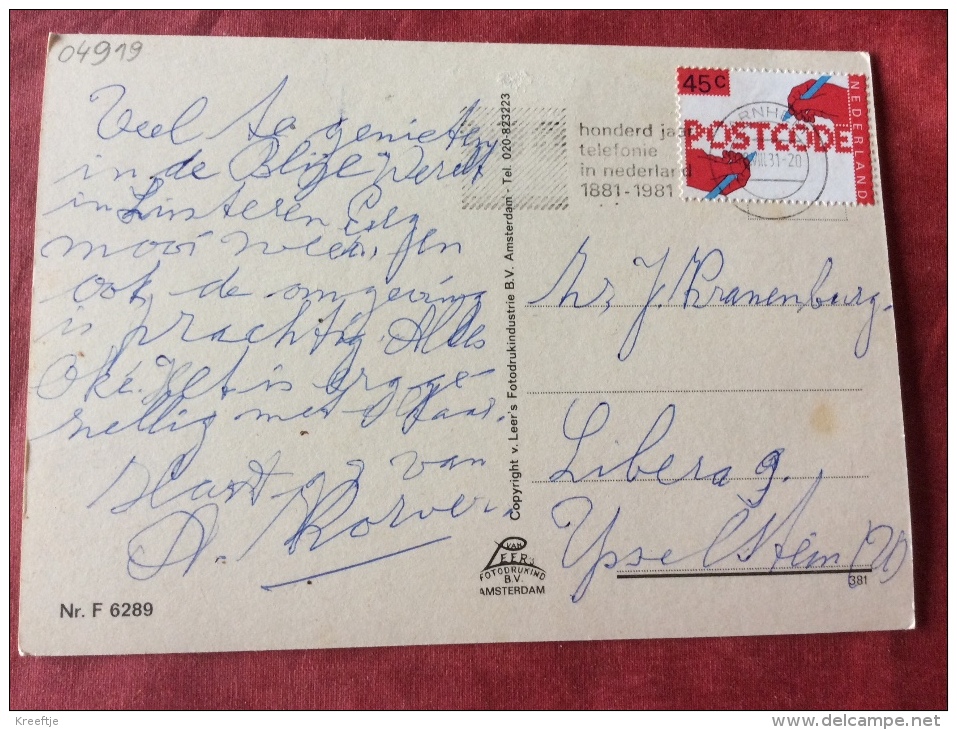 04919
Veel te genieten
in de Blije Werelt
in Lunteren Erg
mooi weer, en
ook de omgeving
is prachtig. Alles
Oké. Het is erg ge-
zellig met elkaar.
Hart. gr van
A. Korver.
Nr. F 6289
Copyright v. Leer's Fotodrukindustrie B.V. Amsterdam - Tel. 020-823223
VAN
LEER's
FOTODRUKIND
B.V.
AMSTERDAM
honderd jaar
telefonie
in nederland
1881-1981
45c
NEDERLAND
POSTCODE
VIII.31-20
J. Kranenburg.
Ysselstein (U)
381
Kreeftje
www.delcampe.net